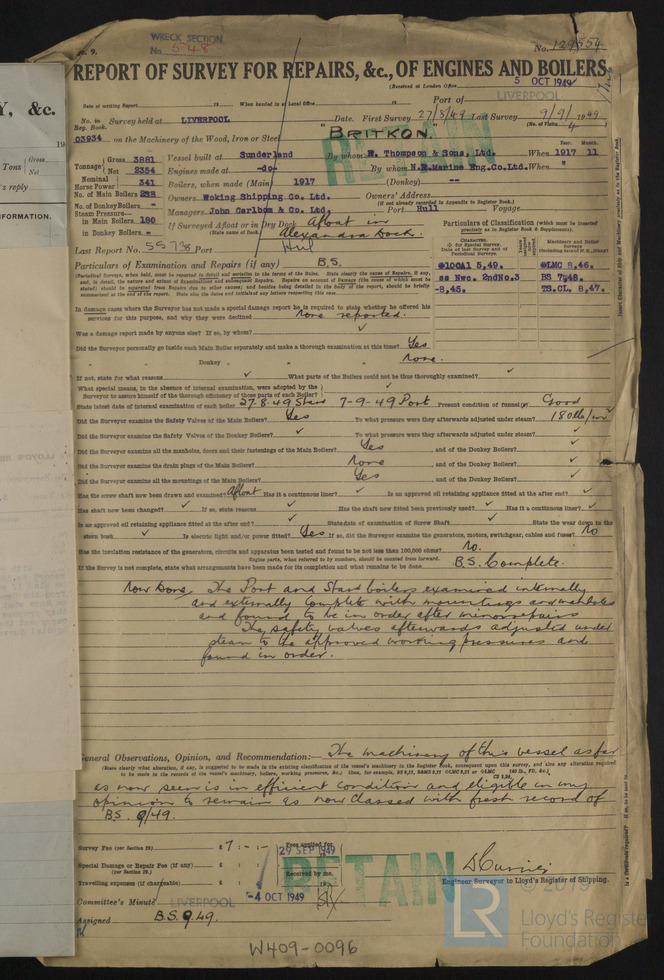 WRECK SECTION
No. 548
No. 129554
REPORT OF SURVEY FOR REPAIRS, &c., OF ENGINES AND BOILERS.
(Received at London Office 5 OCT 1949
Date of writing Report 19 When handed in at Local Office 19 Port of LIVERPOOL
No. in Reg. Book. Survey held at LIVERPOOL Date. First Survey 27/8/49 Last Survey 9/9/1949
(No. of Visits 4)
03934 on the Machinery of the Wood, Iron or Steel "BRITKON."
RETAIN
Tonnage Gross 3881 Net 2354
Vessel built at Sunderland By whom W. Thompson & Sons, Ltd. When 1917 11
Year. Month.
Engines made at -do- By whom N.E.Marine Eng.Co.Ltd. When "
Nominal Horse Power 341
Boilers, when made (Main) 1917 (Donkey) --
No. of Main Boilers 2SB
Owners Woking Shipping Co. Ltd. Owners' Address
(if not already recorded in Appendix to Register Book.)
No. of Donkey Boilers -
Managers John Carlbom & Co. Ltd. Port Hull Voyage
Steam Pressure— in Main Boilers, 180
in Donkey Boilers -
If Surveyed Afloat or in Dry Dock Afloat in Alexandra Dock.
(State name of Dock.)
Last Report No. 55738 Port Hul
Particulars of Classification (which must be inserted precisely as in Register Book & Supplements).
Particulars of Examination and Repairs (if any) B.S.
⊕100A1 5,49. ⊕LMC 8,46.
ss Nwc. 2ndNo.3 BS 7,48.
-8,45. TS.CL. 8,47.
In damage cases where the Surveyor has not made a special damage report he is required to state whether he offered his services for this purpose, and why they were declined None reported.
Was a damage report made by anyone else? If so, by whom? ✓
Did the Surveyor personally go inside each Main Boiler separately and make a thorough examination at this time? Yes
" " Donkey " " " " None.
If not, state for what reasons ✓ What parts of the Boilers could not be thus thoroughly examined? ✓
What special means, in the absence of internal examination, were adopted by the Surveyor to assure himself of the thorough efficiency of those parts of each Boiler? ✓
State latest date of internal examination of each boiler 27.8.49 Stard 7-9-49 Port Present condition of funnel(s) Good
Did the Surveyor examine the Safety Valves of the Main Boilers? Yes To what pressure were they afterwards adjusted under steam? 180
Did the Surveyor examine the Safety Valves of the Donkey Boilers? ✓ To what pressure were they afterwards adjusted under steam? ✓
Did the Surveyor examine all the manholes, doors and their fastenings of the Main Boilers? Yes , and of the Donkey Boilers? ✓
Did the Surveyor examine the drain plugs of the Main Boilers? None , and of the Donkey Boilers? ✓
Did the Surveyor examine all the mountings of the Main Boilers? Yes , and of the Donkey Boilers? ✓
Has the screw shaft now been drawn and examined? Afloat Has it a continuous liner? ✓ Is an approved oil retaining appliance fitted at the after end? ✓
Has shaft now been changed? ✓ If so, state reasons ✓ Has the shaft now fitted been previously used? ✓ Has it a continuous liner? ✓
Is an approved oil retaining appliance fitted at the after end? ✓ State date of examination of Screw Shaft ✓ State the wear down in the
stern bush ✓ Is electric light and/or power fitted? Yes If so, did the Surveyor examine the generators, motors, switchgear, cables and fuses? No
Has the insulation resistance of the generators, circuits and apparatus been tested and found to be not less than 100,000 ohms? No.
Engine parts, when referred to by numbers, should be counted from forward.
If the Survey is not complete, state what arrangements have been made for its completion and what remains to be done. B.S. Complete.
Now Done, The Port and Stard boilers examined internally
and externally complete with mountings and manholes
and found to be in order after minor repairs
The safety valves afterwards adjusted under
steam to the approved working pressures and
found in order.
General Observations, Opinion, and Recommendation:— The machinery of this vessel as far
(State clearly what alteration, if any, is suggested to be made in the existing classification of the vessel's machinery in the Register Book, consequent upon this survey, and also any alteration required
to be made in the records of the vessel's machinery, boilers, working pressures, &c.)
as now seen is in efficient condition and eligible in my
opinion to remain as now classed with fresh record of
BS. 9/49.
Survey Fee (per Section 29) £ 7 : - : - Fees applied for, 29 SEP 1949
Special Damage or Repair Fee (if any) £ : :
(per Section 29.)
Received by me,
Travelling expenses (if chargeable) £ : : 19
RETAIN
Engineer Surveyor to Lloyd's Register of Shipping.
Committee's Minute LIVERPOOL -4 OCT 1949
Assigned B.S. 9.49.
W409-0096
LR
Lloyd's Register
Foundation
Y, &c.
19
Tons Gross Net
's reply
FORMATION.